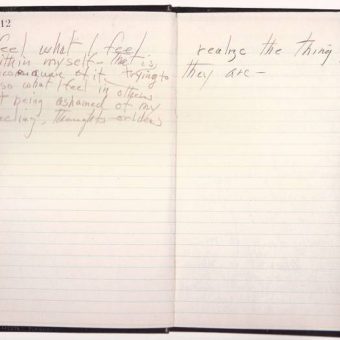 12
feel what I feel
within myself — that is
aware of it trying to
so what I feel in others
t being ashamed of my
eeling, thoughts or ideas
realize the thing
they are —